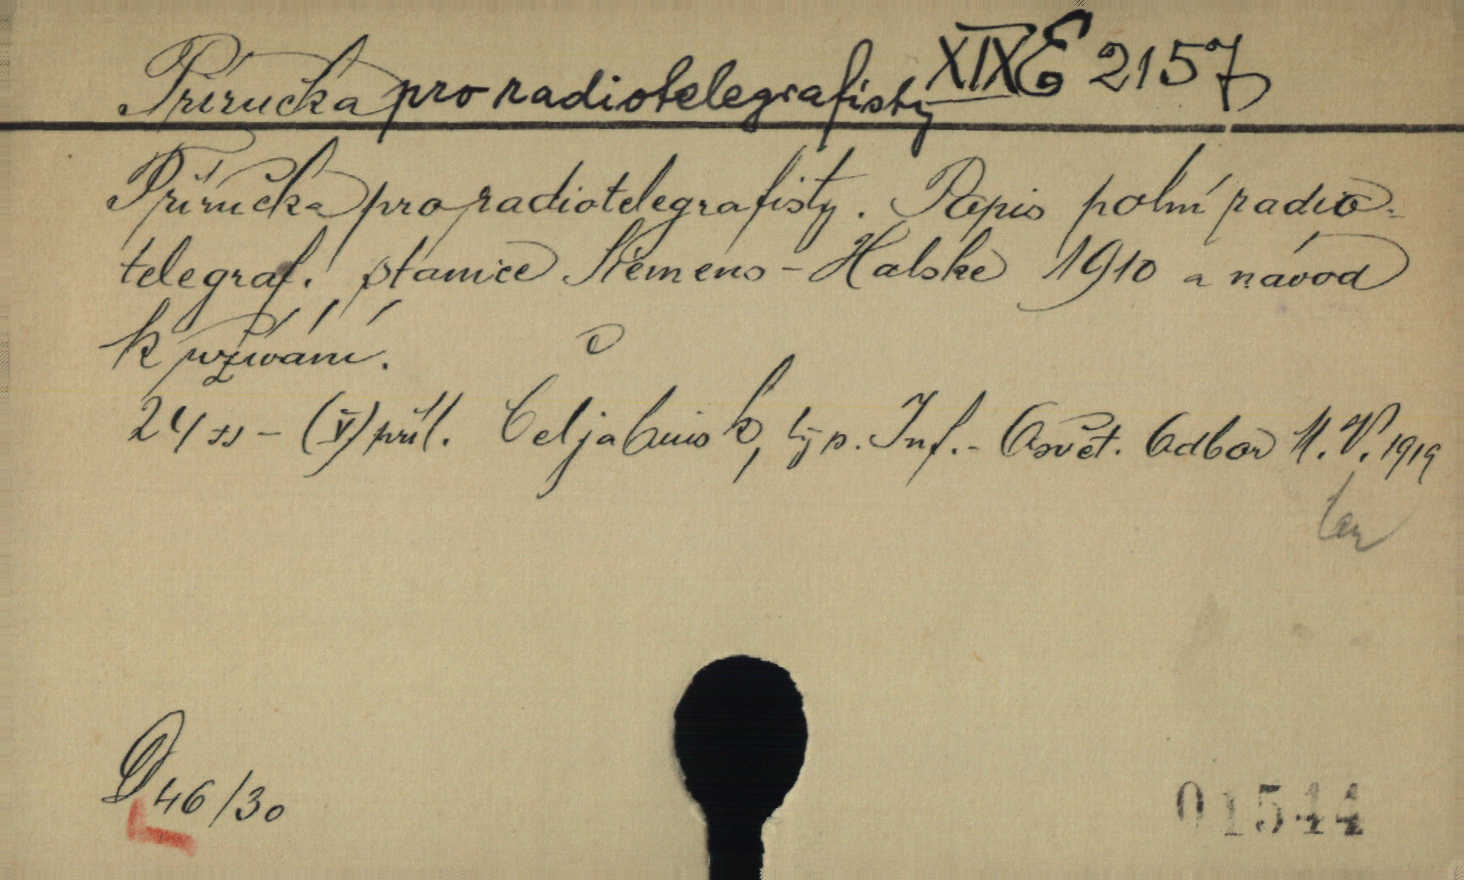 Příručka pro radiotelegrafisty XIX E 2157
Příručka pro radiotelegrafisty. Popis polní radio-
telegraf. stanice Siemens-Halske 1910 a návod
k užívání.
24 ss - (V) příl. Čeljabinsk, typ. Inf.- Osvět. Odbor M. V. 1919
D 46/30
01544